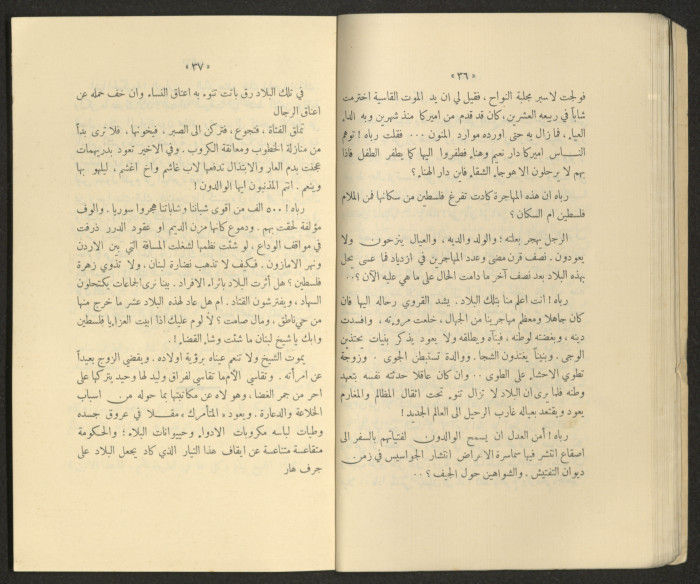 «٣٦»
فولجت لاسبر مجلبة النواح ، فقيل لي ان يد الموت القاسية اخترمت
شاباً في ربيعه العشرين ، كان قد قدم من اميركا منذ شهرين وبه الداء
العياء . فما زال به حتى اورده موارد المنون ٠٠٠٠ فقلت رباه ! توهم
النــاس اميركا دار نعيم وهناء فطفروا اليها كما يطفر الطفل فاذا
بهم لا يرحلون الا هوجاً لشقاء فاين دار الهناء ؟
رباه ان هذه المهاجرة كادت تفرغ فلسطين من سكانها فمن الملام
فلسطين ام السكان ؟
الرجل يهجر بعلته ؛ والولد والديه ، والعيال ينزحون ولا
يعودون . نصف قرن مضى وعدد المهاجرين في ازدياد فما عسى يحل
بهذه البلاد بعد نصف آخر ما دامت الحال على ما هي عليه الآن ؟ ٠٠
رباه ! انت اعلم منا بتلك البلاد . يشد القروي رحاله اليها فان
كان جاهلا ومعظم مهاجرينا من الجهال ، خلعت مروءته ، وافسدت
دينه ، وبغضته لوطنه ، فينآه ويطلقه ولا يعود يذكر بنيات يحتذين
الوجى . وبنيناً يغتذون الشجا . ووالدة تستبطن الجوى . وزوجة
تطوي الاحشاء على الطوى ٠٠ وان كان عاقلا حدثته نفسه بتعهد
وطنه فلما يرى ان البلاد لا تزال تنوء تحت اثقال المظالم والمغارم
يعود ويقتعد بعياله غارب الرحيل الى العالم الجديد !
رباه ! أمن العدل ان يسمح الوالدون لفتياتهم بالسفر الى
اصقاع انتشر فيها سماسرة الاعراض انتشار الجواسيس في زمن
ديوان التفتيش . والشواهين حول الجيف ؟ ٠٠
«٣٧»
في تلك البلاد رق باتت تنوء به اعناق النساء وان خف حمله عن
اعناق الرجال
تملق الفتاة ، فتجوع ، فتركن الى الصبر ، فيخونها ، فلا ترى بداً
من منازلة الخطوب ومعانقة الكروب . وفي الاخير تعود بدريهمات
عجفت بدم العار والابتذال تدفعها لاب غاشم واخ اغشم ، ليلهو بها
وينعم . انتم المذنبون ايها الوالدون !
رباه ! ٥٠٠ الف من اقوى شباننا وشاباتنا هجروا سوريا . والوف
مؤلفة لحقت بهم . ودموع كانها مزن الديم او عقود الدرر ذرفت
في مواقف الوداع ، لو شئت نظمها لشغلت المسافة التي بين الاردن
ونهر الامازون . فكيف لا تذهب نضارة لبنان . ولا تذوي زهرة
فلسطين ؟ هل أثرت البلاد باثراء الافراد . بينا نرى الجماعات يكتحلون
السهاد ، ويفترشون القتاد . ام هل عاد لهذه البلاد عشر ما خرج منها
من حي ناطق ، ومال صامت ؟ لا لوم عليك اذا ابيت العزاء يا فلسطين
وابك يا شيخ لبنان ما شئت وشاء القضاء ! .
يموت الشيخ ولا تنعم عيناه برؤية اولاده . ويقضي الزوج بعيداً
عن امرأته . وتقاسي الأم ما تقاسي لفراق وليد لها وحيد يتركها على
احر من جمر الغضا ، وهو لاه عن مكاتبتها بما حوله من اسباب
الخلاعة والدعارة . ويعود « المتأمرك » مثقــلا في عروق جسده
وطيات لباسه مكروبات الادواء وحييوانات البلاء ؛ والحكومة
متقاعسة متناعسة عن ايقاف هذا التيار الذي كاد يجعل البلاد على
جرف هار